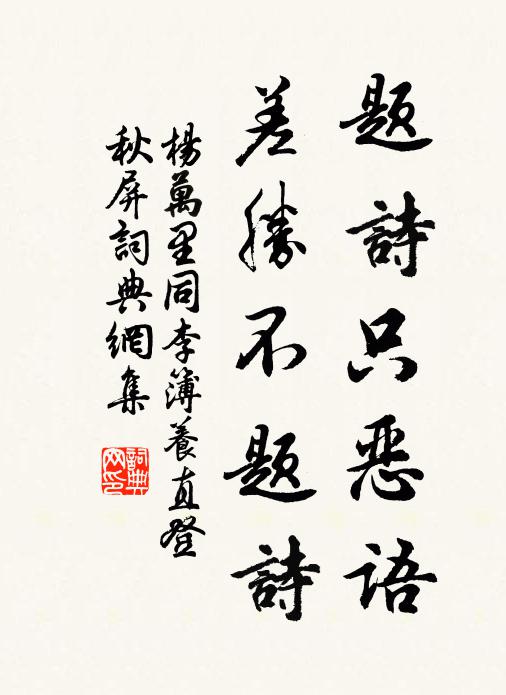 題詩只惡語
差勝不題詩
楊萬里同李簿養直登
秋屏詞典網集
詞典網印